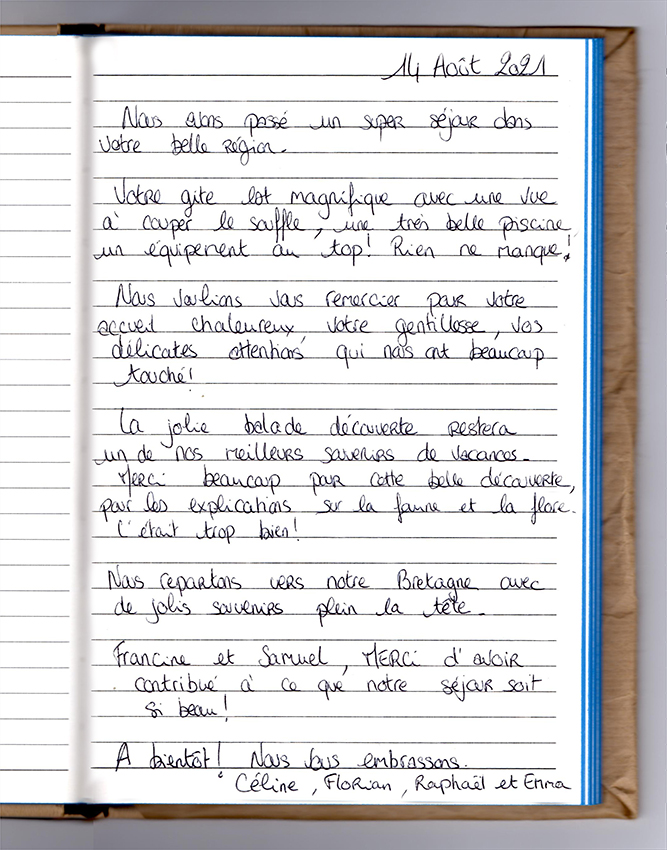 14 Août 2021
Nous avons passé un super séjour dans
votre belle région.
Votre gite est magnifique avec une vue
à couper le souffle, une très belle piscine
un équipement au top! Rien ne manque!
Nous voulions vous remercier pour votre
accueil chaleureux, votre gentillesse, vos
délicates attentions qui nous ont beaucoup
touché!
La jolie balade découverte restera
un de nos meilleurs souvenirs de vacances.
Merci beaucoup pour cette belle découverte,
pour les explications sur la faune et la flore.
C'était trop bien!
Nous repartons vers notre Bretagne avec
de jolis souvenirs plein la tête.
Francine et Samuel, MERCi d'avoir
contribué à ce que notre séjour soit
si beau!
A bientôt! Nous vous embrassons.
Céline, Florian, Raphaël et Emma